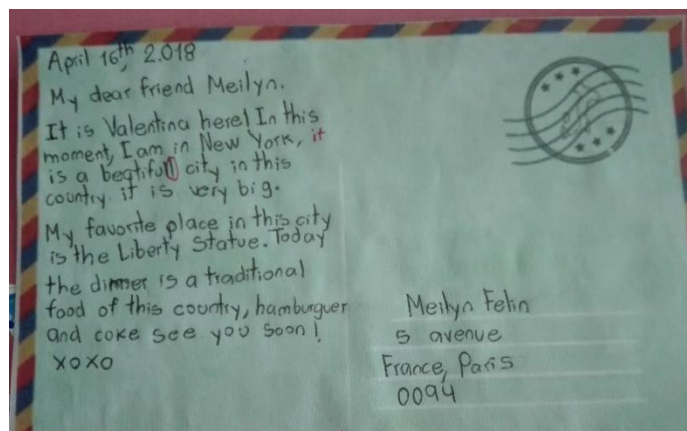 April 16th, 2.018
My dear friend Meilyn.
It is Valentina here! In this
moment, I am in New York, it
is a beatifull city in this
country. it is very big.
My favorite place in this city
is the Liberty Statue. Today
the dinner is a traditional
food of this country, hamburguer
and coke see you soon!
xoxo
Meilyn Felin
5 avenue
France, Paris
0094